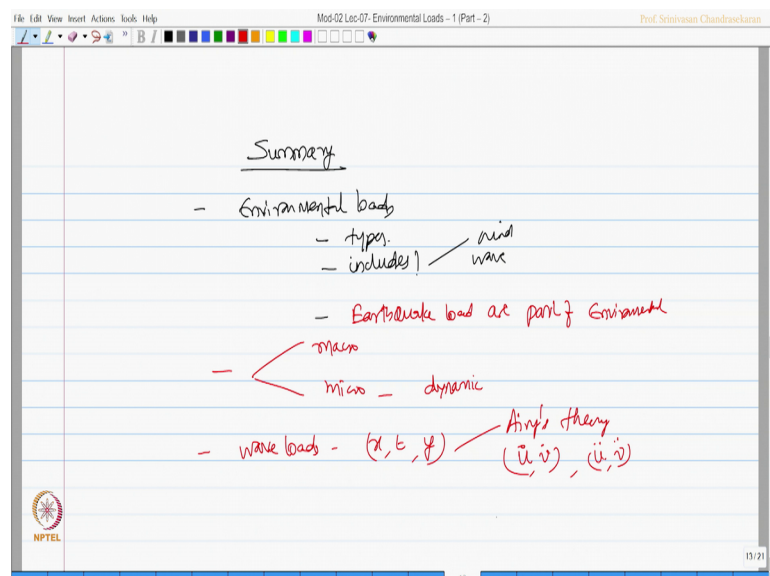 File Edit View Insert Actions Tools Help
Mod-02 Lec-07- Environmental Loads – 1 (Part – 2)
Prof. Srinivasan Chandrasekaran
B I
Summary
- Environmental loads
- types.
- includes! wind
wave
- Earthquake load are part of Environmental
- macro
micro - dynamic
- wave loads - (x, t, y) Airy's theory
(u̇, v̇), (ü, v̈)
NPTEL
13 / 21